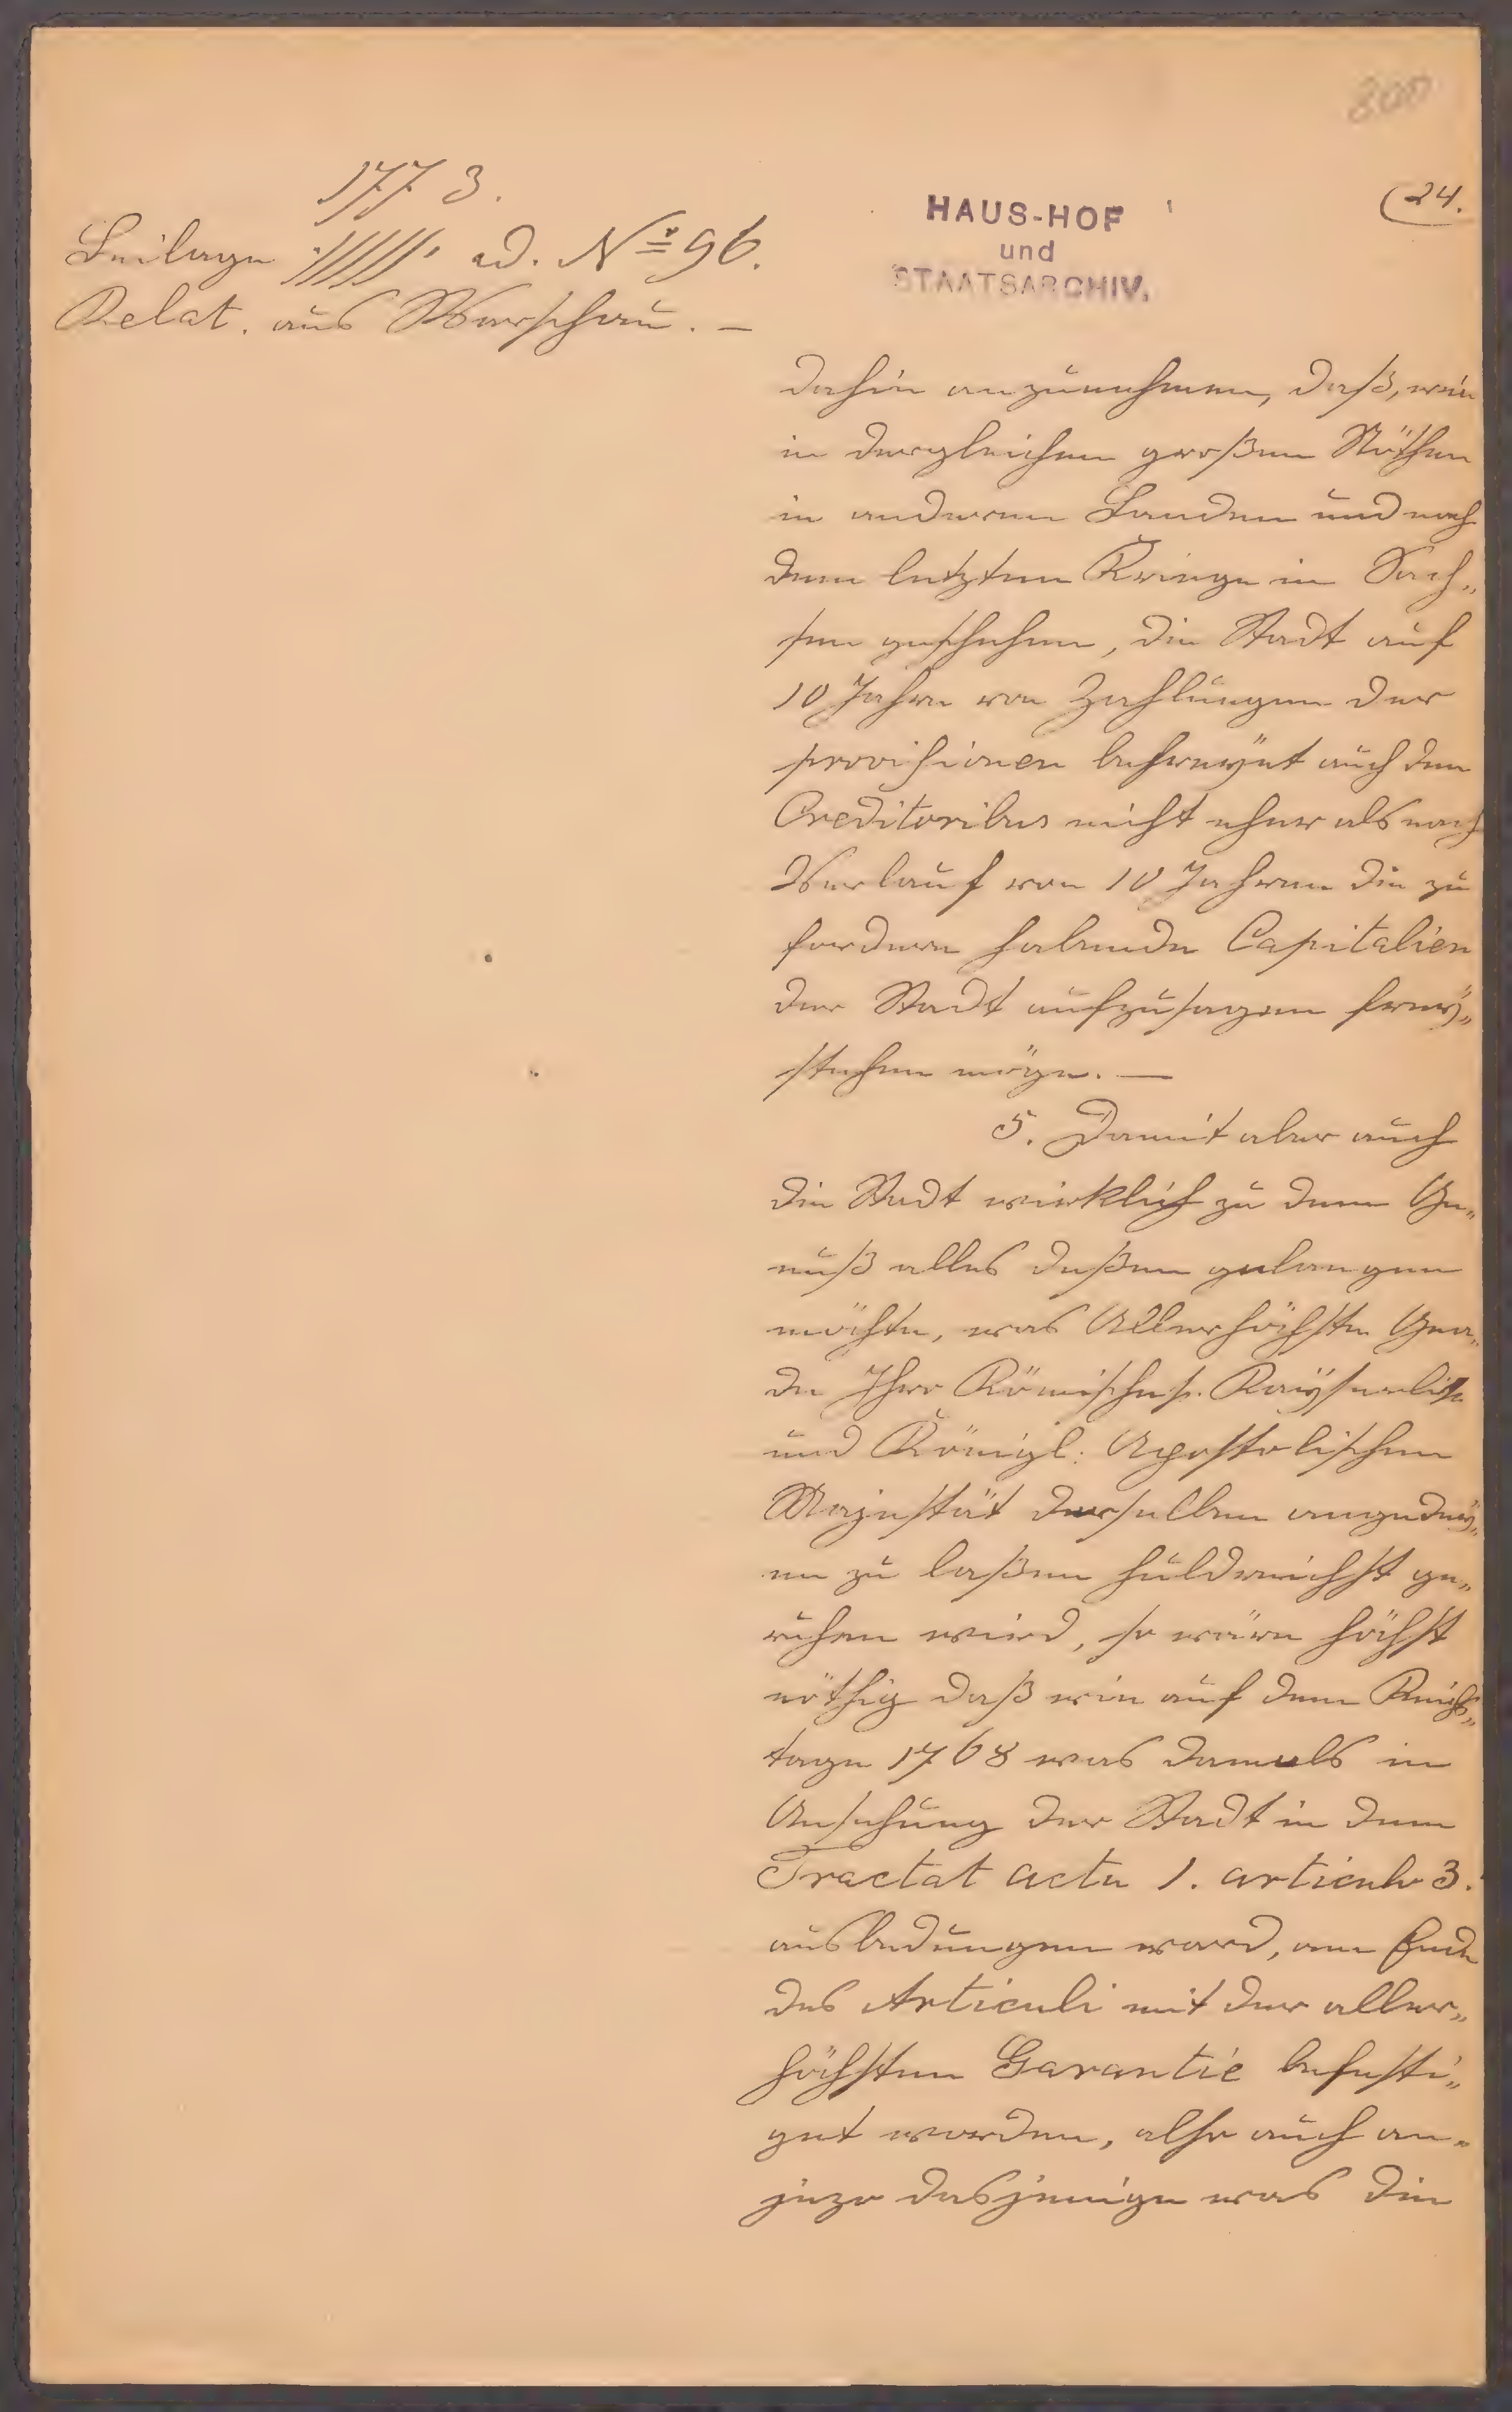 800
1773.
24.
HAUS-HOF
und
STAATSARCHIV.
Beilage ·/////· ad. No 96.
Relat. aus Warschau. —
dahin anzunehmen, daß, wie
in dergleichen großen Nöthen
in anderen Landen und nach
dem letzten Kriege in Sach„
sen geschehen, die Stadt auf
10 Jahre von Zahlungen der
provisionen befreyet auch den
Creditoribus nicht eher als nach
Verlauf von 10 Jahren die zu
fordern habende Capitalien
der Stadt aufzusagen frey„
stehen möge. —
5. Damit aber auch
die Stadt wirklich zu dem Ge„
nuß alles deßen gelangen
möchte, was Allerhöchste Gna„
de Ihro Römische Kayserliche
und Königl: Apostolischen
Majestät derselben angedey„
en zu laßen huldreichst ge„
ruhen wird, so wäre höchst
nöthig daß wie auf dem Reichs„
tage 1768 was damals in
Ansehung der Stadt in dem
Tractat actu 1. articulo 3.
ausbedungen ward, am Ende
des Articuli mit der aller„
höchsten Garantie befesti„
get worden, also auch an„
jezo dasjenige was die